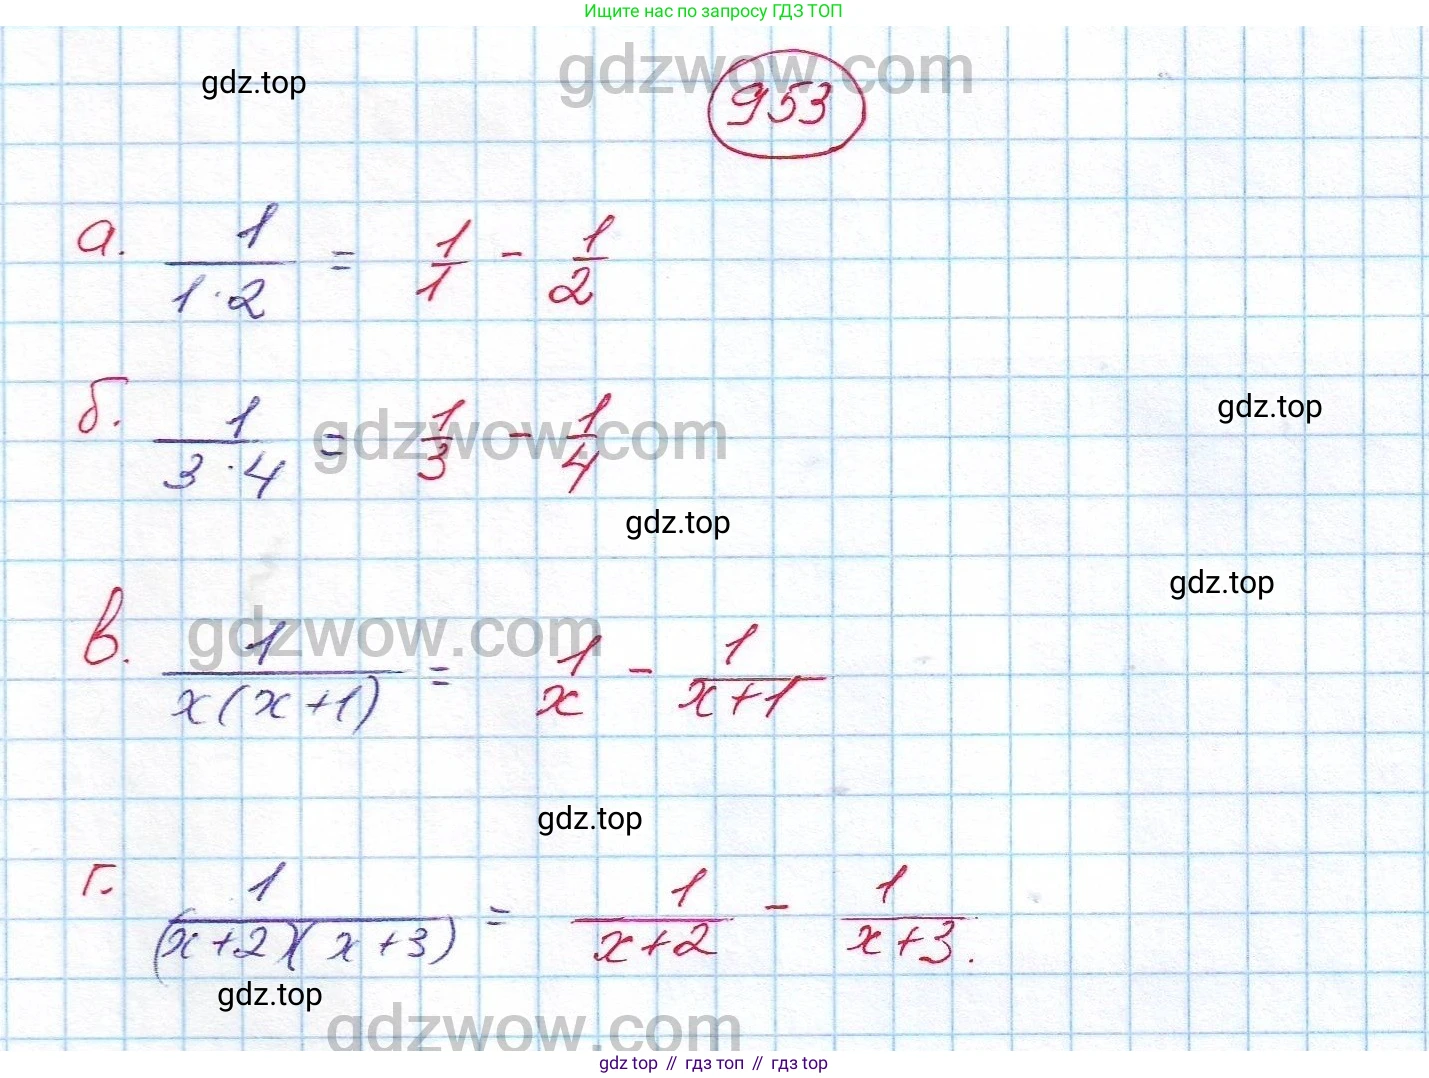 Ищите нас по запросу ГДЗ ТОП
gdzwow.com
gdz.top
953
а. 1/(1·2) = 1/1 - 1/2
gdz.top
б. 1/(3·4) = 1/3 - 1/4
gdzwow.com
gdz.top
gdz.top
gdzwow.com
в. 1/(x(x+1)) = 1/x - 1/(x+1)
gdz.top
г. 1/((x+2)(x+3)) = 1/(x+2) - 1/(x+3).
gdz.top
gdzwow.com
gdz top // гдз топ // гдз top